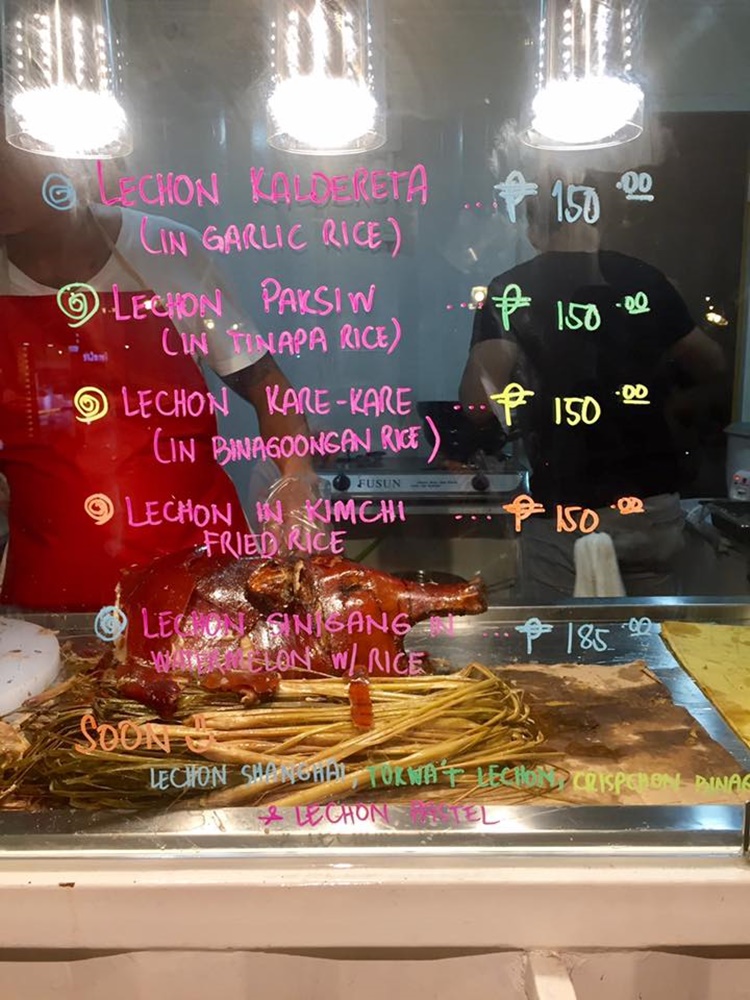 LECHON KALDERETA ... ₱ 150.00
(IN GARLIC RICE)
LECHON PAKSIW ... ₱ 150.00
(IN TINAPA RICE)
LECHON KARE-KARE ... ₱ 150.00
(IN BINAGOONGAN RICE)
FUSUN
LECHON IN KIMCHI ... ₱ 150.00
FRIED RICE
LECHON SINIGANG IN ... ₱ 185.00
WATERMELON W/ RICE
SOON
LECHON SHANGHAI, TOKWA'T LECHON, CRISPCHON BINAG
& LECHON PASTEL